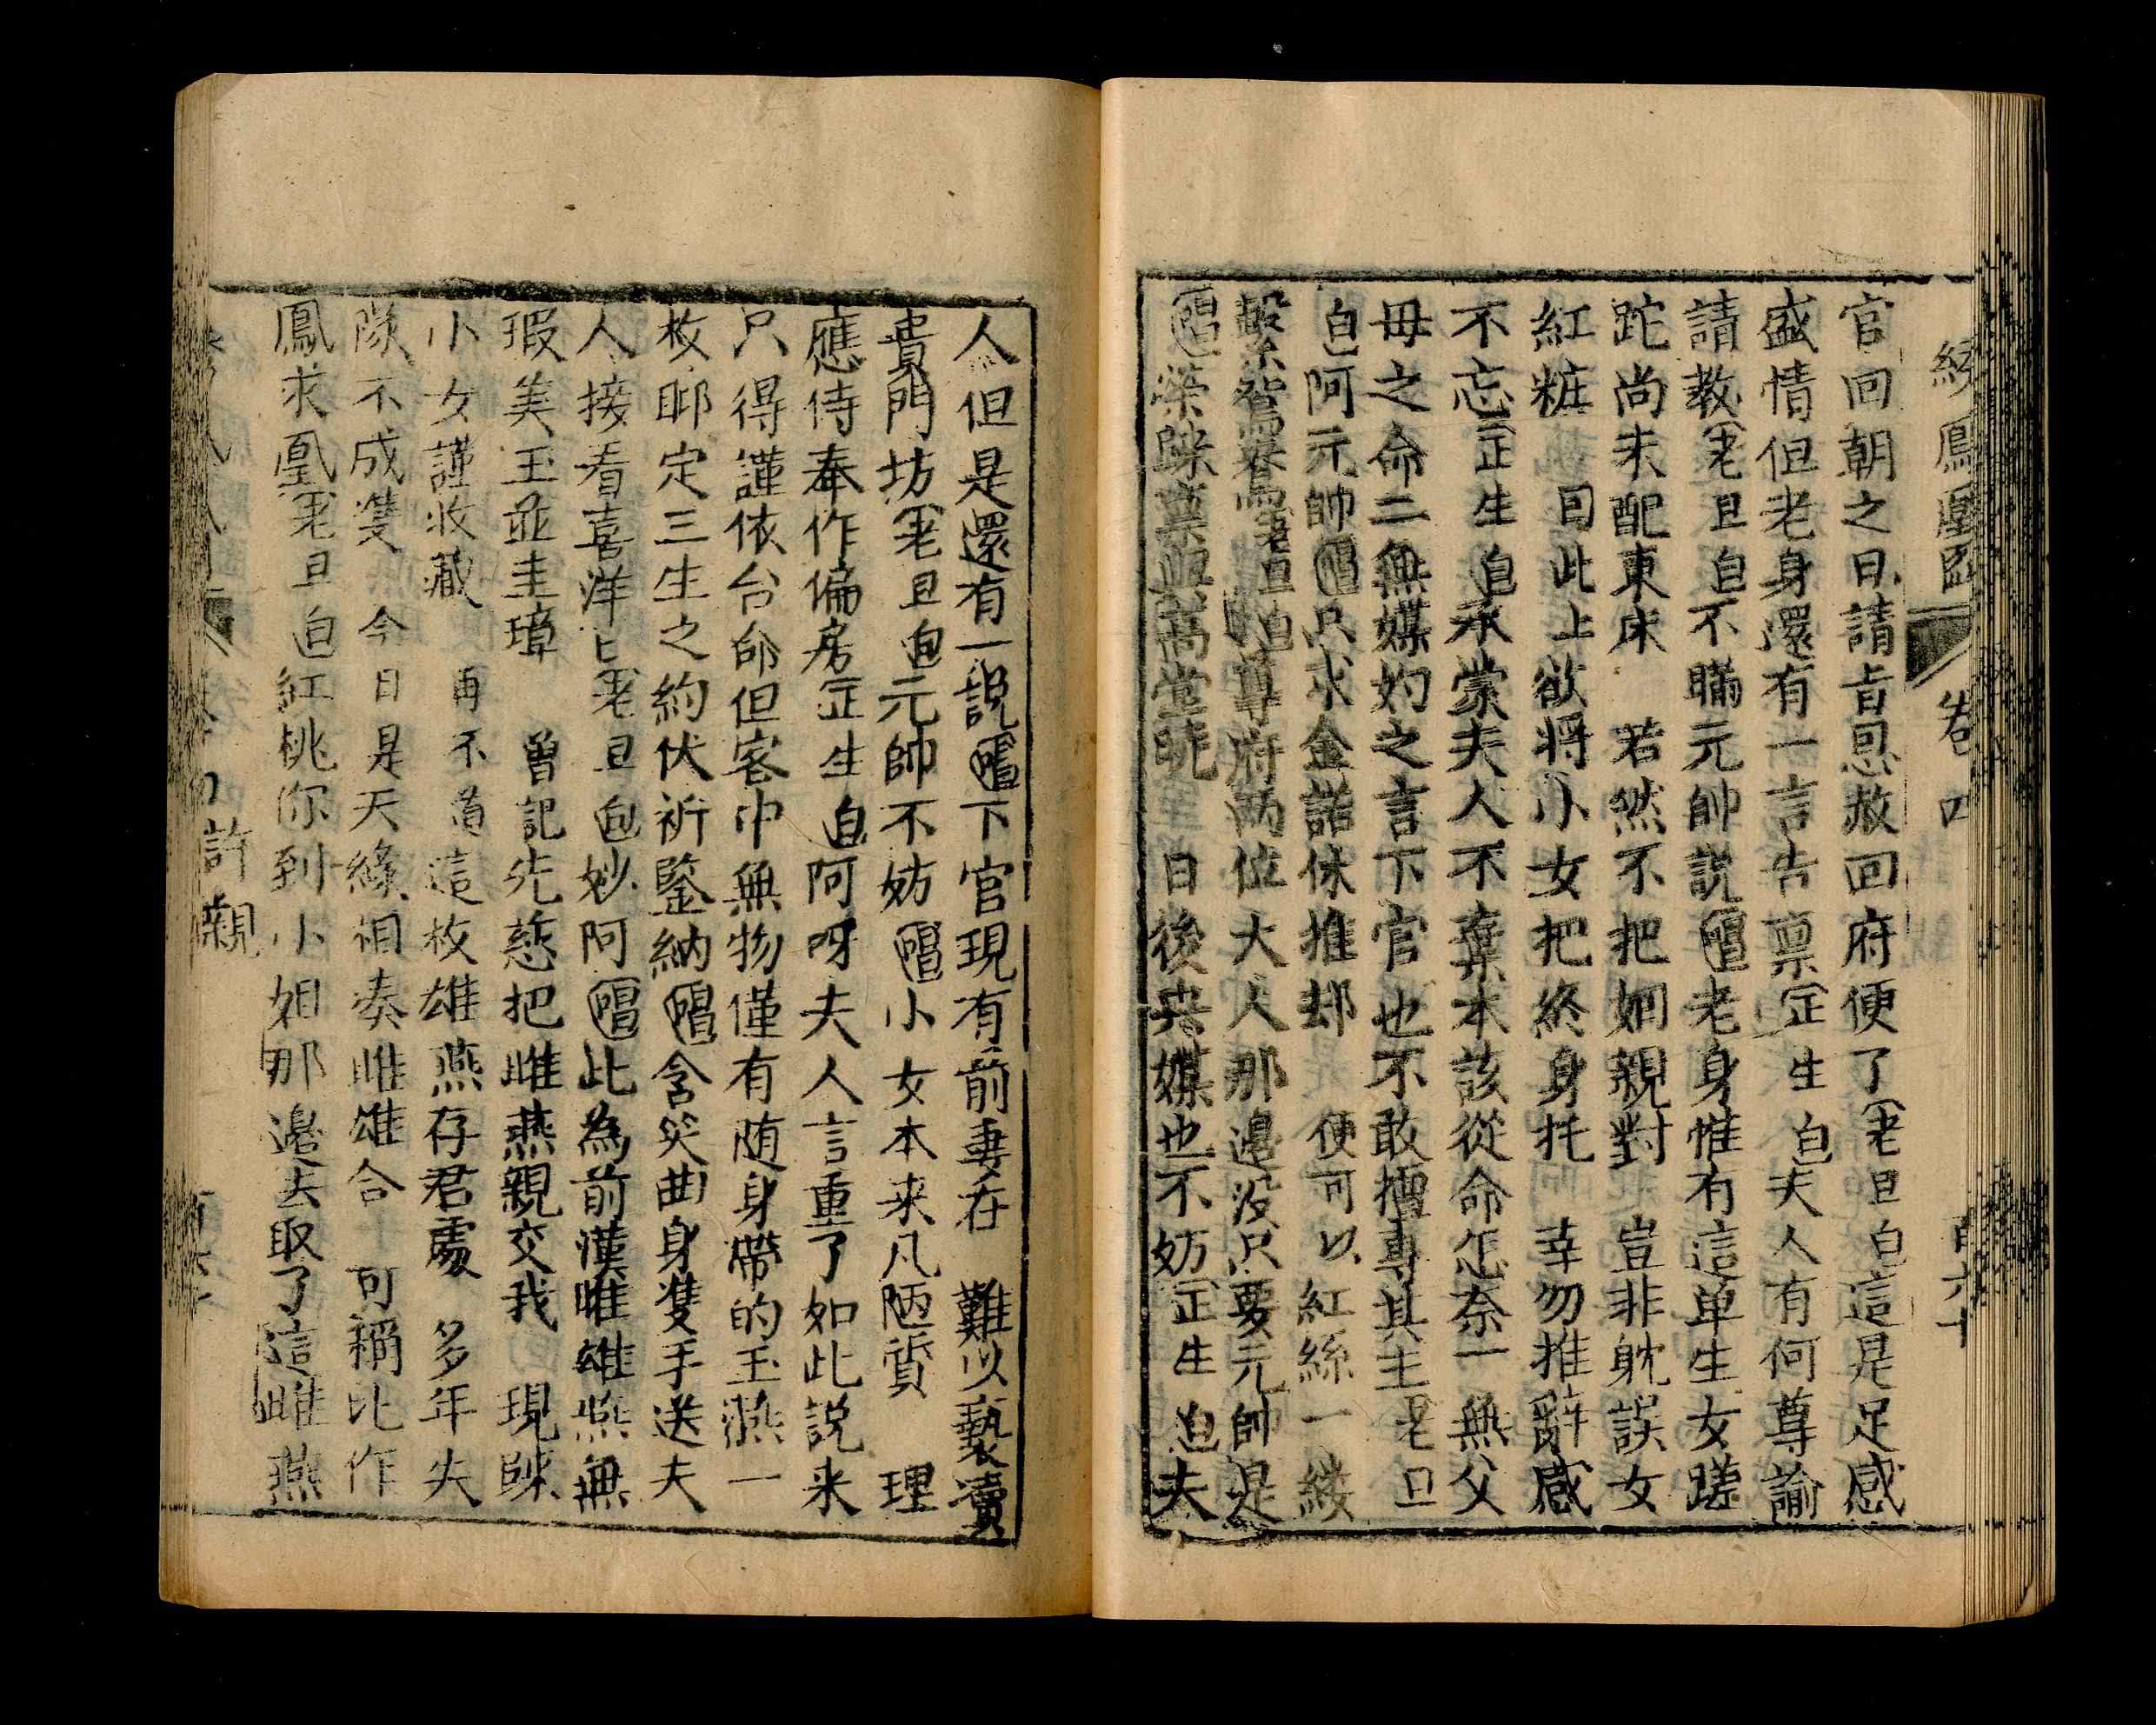 綉鳳凰圖 卷四
官回朝之日請旨恩赦回府便了老旦白這是足感
盛情但老身還有一言告禀正生白夫人有何尊諭
請教老旦白不瞞元帥説唱老身惟有這单生女蹉
跎尚未配東床 若然不把姻親對 豈非躭誤女
紅粧 因此上欲将小女把終身托 幸勿推辭感
不忘正生白承蒙夫人不棄本該從命怎奈一無父
母之命二無媒妁之言下官也不敢擅專其主老旦
白阿元帥唱只求金諾休推却 便可以紅絲一綫
繫鴛鴦老旦白尊府两位大人那邉没只要元帥是
唱 日後央媒也不妨正生白夫
人但是還有一説唱下官現有前妻在 難以褻瀆
貴門坊老旦白元帥不妨唱小女本来凡陋質 理
應侍奉作偏房正生白阿呀夫人言重了如此説来
只得謹依台命但客中無物僅有随身帶的玉燕一
枚聊定三生之約伏祈鑒納唱含笑曲身雙手送夫
人接看喜洋匕老旦白妙阿唱此為前漢雌雄燕無
瑕美玉並圭璋 曽記先慈把雌燕親交我 現
小女謹收藏 再不道這枚雄燕存君處 多年失
隊不成雙 今日是天緣相凑雌雄合 可稱比作
鳳求凰老旦白紅桃你到小姐那邉去取了這雌燕
許親